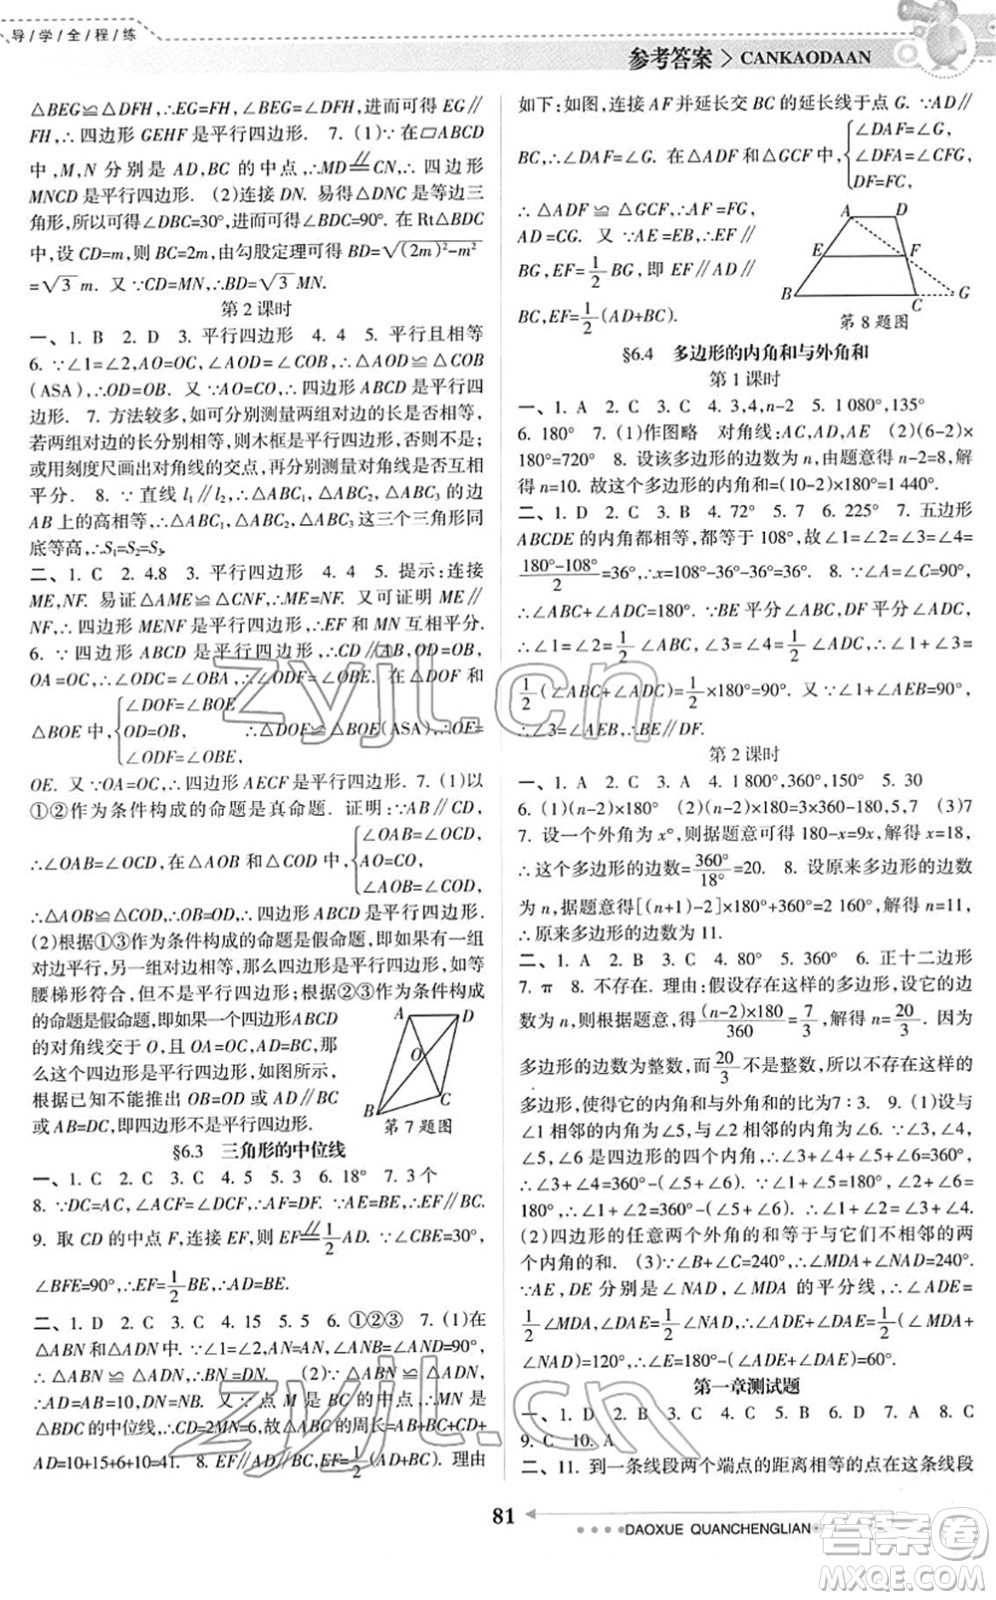 导/学/全/程/练
参考答案 > CANKAODAAN
△BEG≌△DFH,∴EG=FH,∠BEG=∠DFH,进而可得 EG∥
FH,∴四边形 GEHF 是平行四边形. 7. (1)∵在▱ABCD
中,M,N 分别是 AD,BC 的中点,∴MD∥=CN,∴四边形
MNCD 是平行四边形. (2)连接 DN. 易得△DNC 是等边三
角形,所以可得∠DBC=30°,进而可得∠BDC=90°. 在 Rt△BDC
中,设 CD=m,则 BC=2m,由勾股定理可得 BD=√((2m)²-m²)
=√3 m. 又∵CD=MN,∴BD=√3 MN.
第 2 课时
一、1. B 2. D 3. 平行四边形 4. 4 5. 平行且相等
6. ∵∠1=∠2,AO=CO,∠AOD=∠COB,∴△AOD≌△COB
(ASA),∴OD=OB. 又∵AO=CO,∴四边形 ABCD 是平行四
边形. 7. 方法较多,如可分别测量两组对边的长是否相等,
若两组对边的长分别相等,则木框是平行四边形,否则不是;
或用刻度尺画出对角线的交点,再分别测量对角线是否互相
平分. 8. ∵直线 l₁∥l₂,∴△ABC₁,△ABC₂,△ABC₃的边
AB 上的高相等,∴△ABC₁,△ABC₂,△ABC₃这三个三角形同
底等高,∴S₁=S₂=S₃.
二、1. C 2. 4.8 3. 平行四边形 4. 4 5. 提示:连接
ME,NF. 易证△AME≌△CNF,∴ME=NF. 又可证明 ME∥
NF,∴四边形 MENF 是平行四边形,∴EF 和 MN 互相平分.
6. ∵四边形 ABCD 是平行四边形,∴CD∥AB,OD=OB,
OA=OC,∴∠ODC=∠OBA,∴∠ODF=∠OBE. 在△DOF 和
△BOE 中,{∠DOF=∠BOE
OD=OB,
∠ODF=∠OBE,
∴△DOF≌△BOE(ASA),∴OE=
OE. 又∵OA=OC,∴四边形 AECF 是平行四边形. 7. (1)以
①②作为条件构成的命题是真命题. 证明:∵AB∥CD,
∴∠OAB=∠OCD,在△AOB 和△COD 中,{∠OAB=∠OCD,
AO=CO,
∠AOB=∠COD,
∴△AOB≌△COD,∴OB=OD,∴四边形 ABCD 是平行四边形.
(2)根据①③作为条件构成的命题是假命题,即如果有一组
对边平行,另一组对边相等,那么四边形是平行四边形,如等
腰梯形符合,但不是平行四边形;根据②③作为条件构成
的命题是假命题,即如果一个四边形ABCD
的对角线交于 O,且OA=OC,AB=DC,那
么这个四边形是平行四边形,如图所示,
根据已知不能推出 OB=OD 或 AD∥BC 或
AB=DC,即四边形不是平行四边形.
A D O B C
第 7 题图
§6.3 三角形的中位线
一、1. C 2. C 3. C 4. 5 5. 3 6. 18° 7. 3 个
8. ∵DC=AC,∠ACF=∠DCF,∴AF=DF. ∵AE=BE,∴EF∥BC.
9. 取 CD 的中点 F,连接 EF,则 EF∥=1/2 AD. ∵∠CBE=30°,
∠BFE=90°,∴EF=1/2 BE,∴AD=BE.
二、1. D 2. C 3. C 4. 15 5. 5 6. ①②③ 7. (1)在
△ABN 和△ADN 中.∵∠1=∠2,AN=AN,∠ANB=∠AND=90°,
∴△ABN≌△ADN,∴BN=DN. (2)∵△ABN≌△ADN,∴
AD=AB=10,DN=NB. 又∵点 M 是 BC 的中点,∴MN 是
△BDC 的中位线,∴CD=2MN=6,故△ABC 的周长=AB+BC+CD+
AD=10+15+6+10=41. 8. EF∥AD∥BC,EF=1/2(AD+BC). 理由
如下:如图,连接 AF并延长交 BC 的延长线于点 G. ∵AD∥
BC,∴∠DAF=∠G. 在△ADF 和△GCF 中,{∠DAF=∠G,
∠DFA=∠CFG,
DF=FC,
∴△ADF≌△GCF,∴AF=FG,
AD=CG. 又∵AE=EB,∴EF∥
BG,EF=1/2 BG,即 EF∥AD∥
BC,EF=1/2(AD+BC).
A D E F B C G
第 8 题图
§6.4 多边形的内角和与外角和
第 1 课时
一、1. A 2. C 3. C 4. 3,4,n-2 5. 1 080°,135°
6. 180° 7. (1)作图略 对角线:AC,AD,AE (2)(6-2)×
180°=720° 8. 设该多边形的边数为 n,由题意得 n-2=8,解
得 n=10. 故这个多边形的内角和=(10-2)×180°=1 440°.
二、1. D 2. C 3. B 4. 72° 5. 7 6. 225° 7. 五边形
ABCDE 的内角都相等,都等于 108°,故∠1=∠2=∠3=∠4=
(180°-108°)/2=36°,∴x=108°-36°-36°=36° 8. ∵∠A=∠C=90°,
∴∠ABC+∠ADC=180°. ∵BE 平分∠ABC,DF 平分∠ADC,
∴∠1=∠2=1/2∠ABC,∠3=∠4=1/2∠ADC,∴∠1+∠3=
1/2(∠ABC+∠ADC)=1/2×180°=90°. 又∵∠1+∠AEB=90°,
∴∠3=∠AEB,∴BE∥DF.
第 2 课时
一、1. A 2. C 3. A 4. 1 800°,360°,150° 5. 30
6. (1)(n-2)×180° (2)(n-2)×180=3×360-180,5,7 (3)7
7. 设一个外角为 x°,则据题意可得 180-x=9x,解得 x=18,
∴这个多边形的边数=360°/18°=20. 8. 设原来多边形的边数
为 n,据题意得[(n+1)-2]×180°+360°=2 160°,解得 n=11,
∴原来多边形的边数为 11.
二、1. A 2. B 3. C 4. 80° 5. 360° 6. 正十二边形
7. π 8. 不存在. 理由:假设存在这样的多边形,设它的边
数为 n,则根据题意,得(n-2)×180/360=7/3,解得 n=20/3. 因为
多边形的边数为整数,而20/3不是整数,所以不存在这样的
多边形,使得它的内角和与外角和的比为7∶3. 9. (1)设与
∠1 相邻的内角为∠5,与∠2 相邻的内角为∠6.∵∠3,∠4,
∠5,∠6是四边形的四个内角,∴∠3+∠4+∠5+∠6=360°,
∴∠3+∠4=360°-(∠5+∠6). ∵∠1+∠5=180°,∠2+∠6=
180°,∴∠1+∠2=360°-(∠5+∠6),∴∠1+∠2=∠3+∠4.
(2)四边形的任意两个外角的和等于与它们不相邻的两
个内角的和. (3)∵∠B+∠C=240°,∴∠MDA+∠NAD=240°.
∵AE,DE 分别是∠NAD,∠MDA 的平分线,∴∠ADE=
1/2∠MDA,∠DAE=1/2∠NAD,∴∠ADE+∠DAE=1/2(∠MDA+
∠NAD)=120°,∴∠E=180°-(∠ADE+∠DAE)=60°.
第一章测试题
一、1. D 2. B 3. C 4. A 5. C 6. D 7. A 8. C
9. C 10. A
二、11. 到一条线段两个端点的距离相等的点在这条线段
81
DAOXUE QUANCHENGLIAN
zyjl.cn
zyjl.cn
答案圈
MXQE.COM